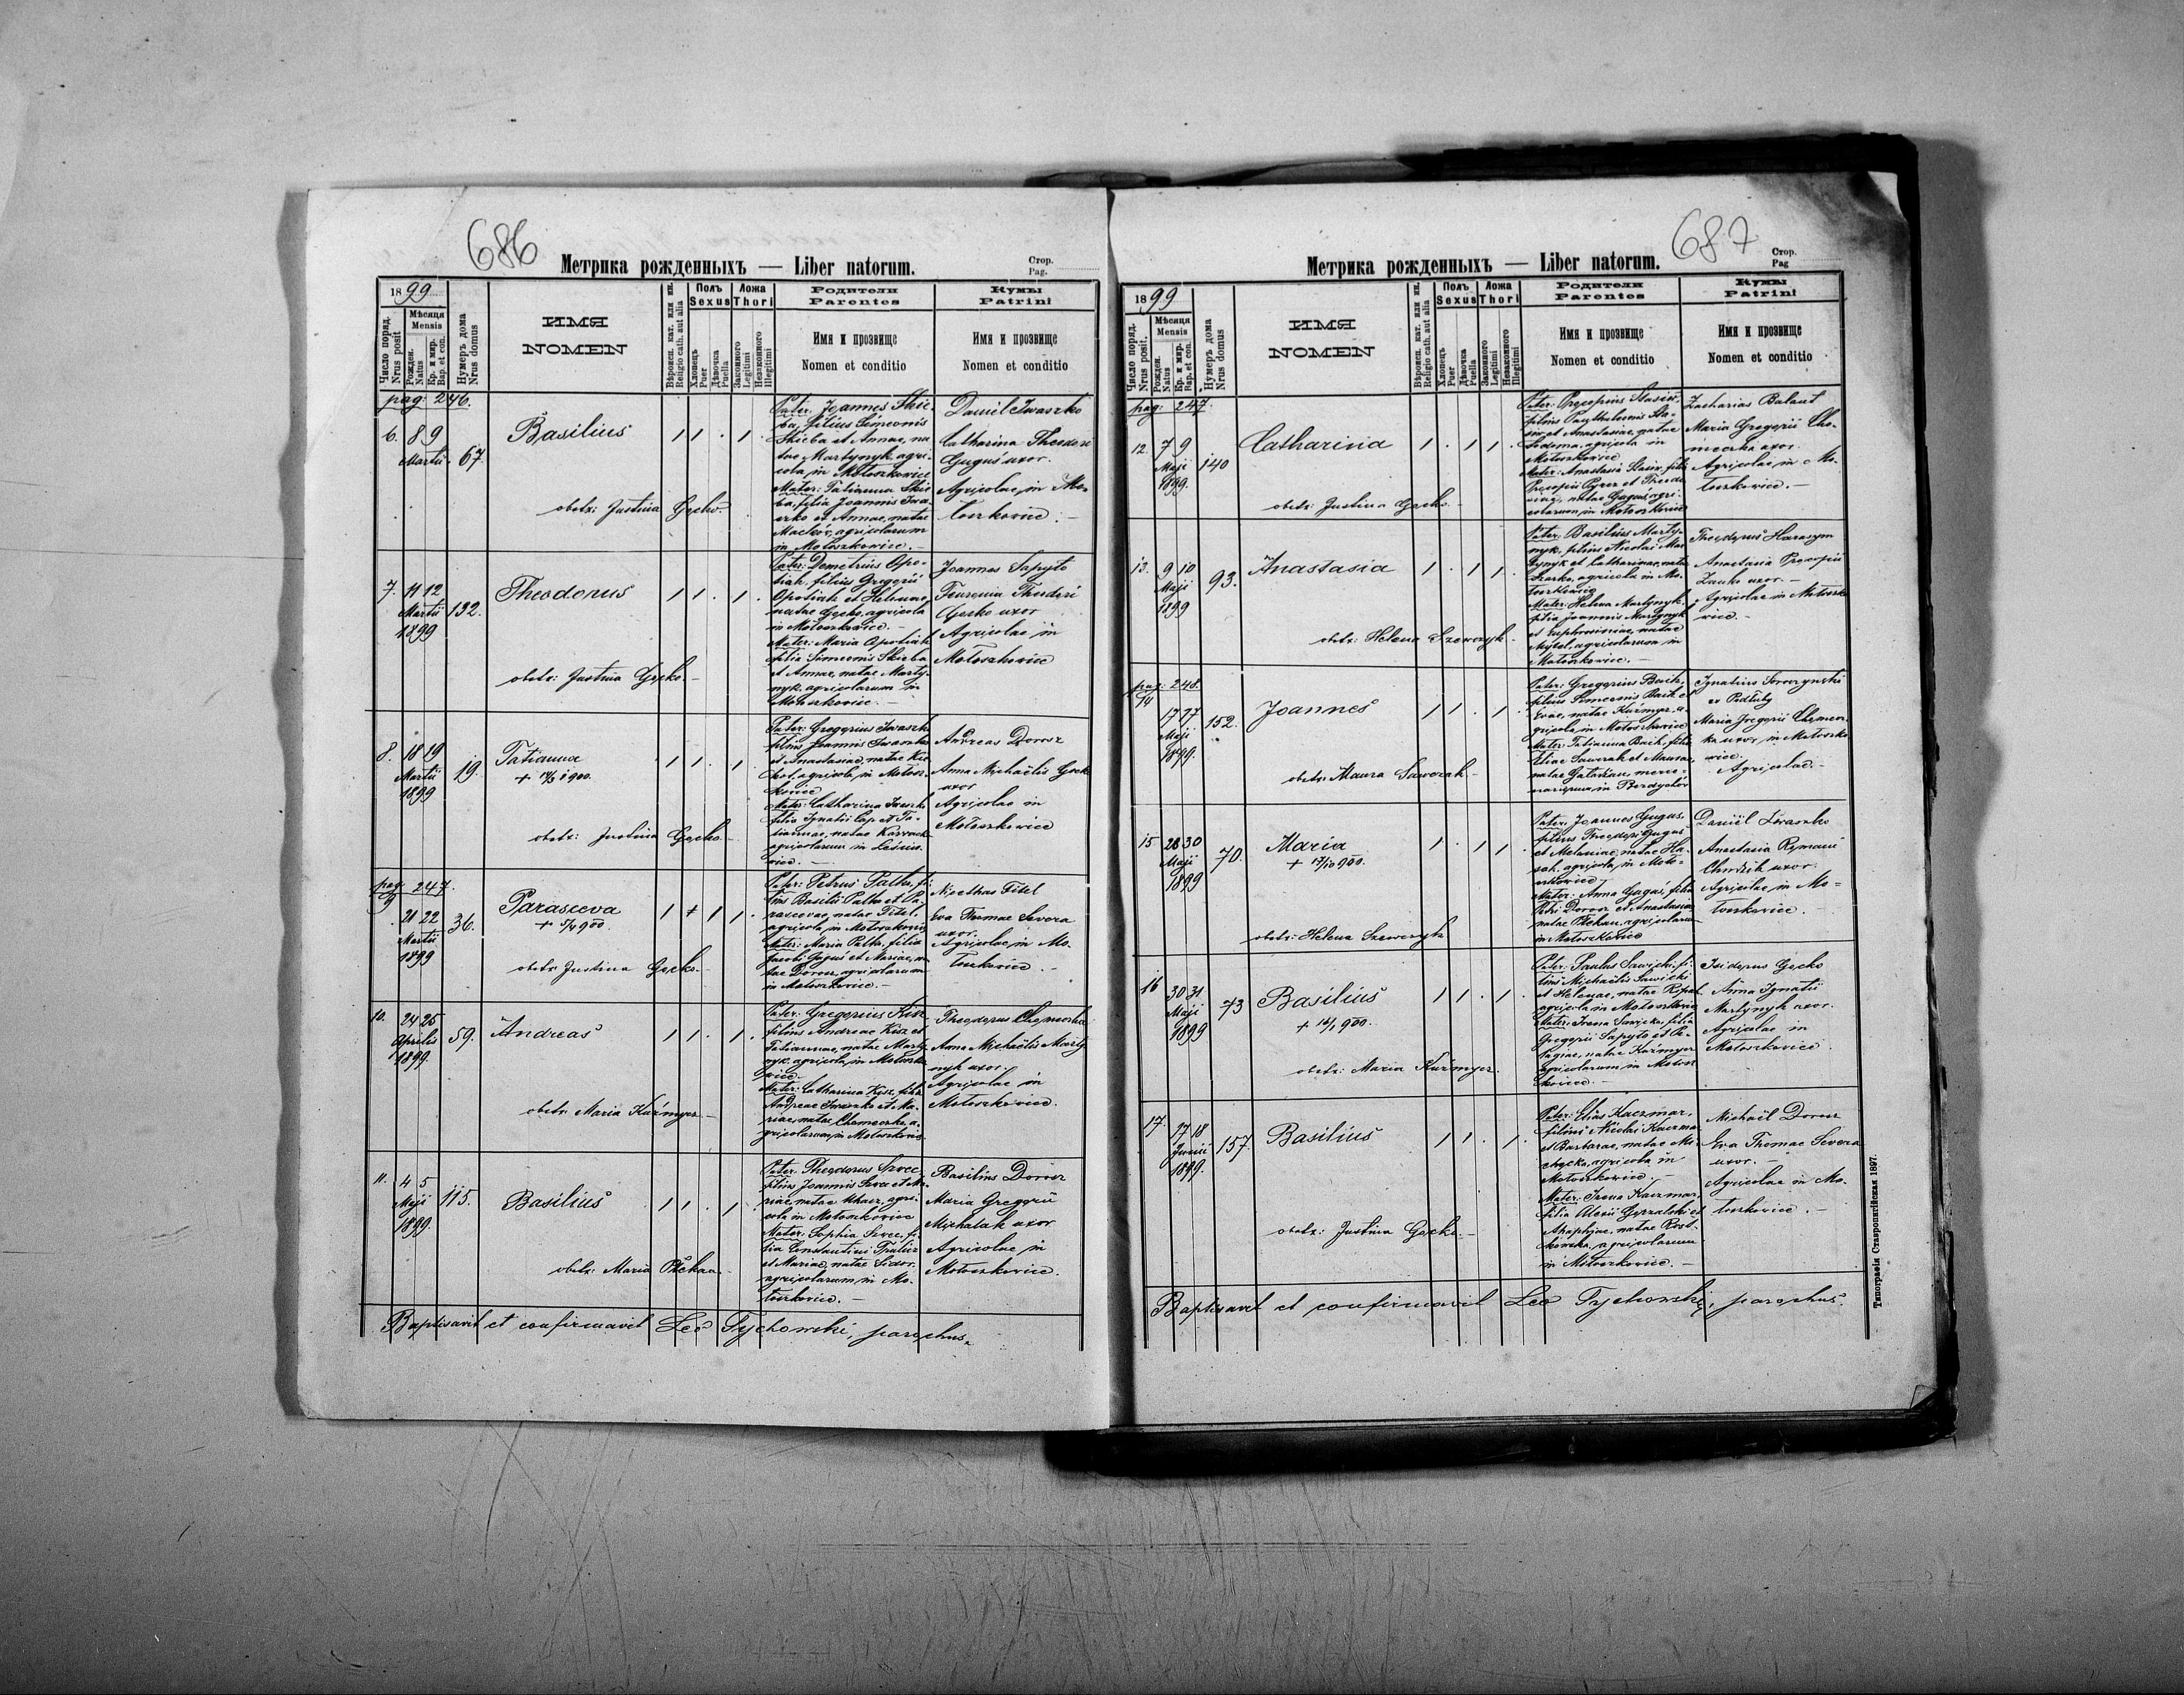 686
Метрика рожденныхъ — Liber natorum.
Стор.
Pag.
1899
Число поряд.
Nrus posit
Мѣсяця
Mensis
Рожден.
Natus
Кр. и мир.
Bap. et con.
Нумеръ дома
Nrus domus
ИМЯ
NOMEN
Вѣроисп. кат. или ин.
Religio cath. aut alia
Полъ
Sexus
Хлопецъ
Puer
Дѣвочка
Puella
Ложа
Thori
Законного
Legitimi
Незаконного
Illegitimi
Родители
Parentes
Имя и прозвище
Nomen et conditio
Кумы
Patrini
Имя и прозвище
Nomen et conditio
pag: 246.
6. 8 9
Martii 67.
Basilius
obstx: Justina Gecko.
Pater: Joannes Skie-
ba, filius Simeonis
Skieba et Annae, na
tae Martynyk, agri-
cola in Mołoszkowice
Mater: Tatianna Skie
ba, filia Joannis Iwa
szko et Annae, natae
Maćków, agricolarum
in Mołoszkowice.—
Daniel Iwaszko
Catharina Theodori
Guguś uxor.
Agricolae in Mo-
łoszkowice.—
7. 11 12
Martii
1899 132.
Theodorus
obstx: Justina Gecko.
Pater: Demetrius Opo-
tiak, filius Gregorii
Opotiak et Helenae,
natae Gecko, agricola
in Mołoszkowice.—
Mater: Maria Opotiak
filia Simeonis Skieba
et Annae, natae Marty-
nyk, agricolarum in
Mołoszkowice.—
Joannes Sapyto
Theodori
Gecko uxor
Agricolae in
Mołoszkowice
8. 18 19
Martii
1899 19.
Tatianna
obstx: Justina Gecko.—
Pater: Gregorius Iwaszko
filius Joannis Iwaszko
et Anastasiae, natae
agricola in Mołosz-
kowice
Mater: Catharina Iwaszko
filia Ignatii Cap et Ta-
tiannae, natae
agricolarum in
Andreas Dorosz
Anna Michaëlis Gecko
uxor
Agricolae in
Mołoszkowice
pag: 247.
9
21 22
Martii
1899 36.
Parasceva
obstx: Justina Gecko.—
Pater: Petrus Patła, fi-
lius Basilii Patła et Pa-
rascevae, natae Fitel,
agricola in Mołoszkowice
Mater: Maria Patła, filia
Jacobi Guguś et Mariae, na
tae Dorosz, agricolarum
in Mołoszkowice.—
Nicethas Fitel
Eva Thomae Severa
uxor.
Agricolae in Mo-
łoszkowice.—
10. 24 25
Aprilis
1899. 59.
Andreas
obstx: Maria Kuźmycz.—
Pater: Gregorius Kisz
filius Andreae Kisz et
Tatiannae, natae Marty-
nyk, agricola in Mołoszko
wice.—
Mater: Catharina Kisz, filia
Andreae Iwaszko et Ma-
riae, natae Chomeczka, a-
gricolarum in Mołoszkowice
Theodorus Chomeczka
Anna Michaëlis Marty-
nyk uxor.
Agricolae in
Mołoszkowice.
11. 4 5
Maji
1899. 115.
Basilius
obstx: Maria Ptekan.
Pater: Theodorus Szwec
filius Joannis Szwec et Ma-
riae, natae Tkacz, agri-
cola in Mołoszkowice
Mater: Sophia Szwec, fi-
lia Constantini
et Mariae, natae Sidor,
agricolarum in Mo-
łoszkowice.—
Basilius Dorosz
Maria Gregorii
Michalak uxor
Agricolae in
Mołoszkowice.
Baptisavit et confirmavit Leo Tychowski, parochus.
687
Метрика рожденныхъ — Liber natorum.
Стор.
Pag
1899
Число поряд.
Nrus posit.
Мѣсяця
Mensis
Рожден.
Natus
Кр. и мир.
Bap. et con.
Нумеръ дома
Nrus domus
ИМЯ
NOMEN
Вѣроисп. кат. или ин.
Religio cath. aut alia
Полъ
Sexus
Хлопецъ
Puer
Дѣвочка
Puella
Ложа
Thori
Законного
Legitimi
Незаконного
Illegitimi
Родители
Parentes
Имя и прозвище
Nomen et conditio
Кумы
Patrini
Имя и прозвище
Nomen et conditio
pag: 247.
12. 7 9
Maji
1899. 140
Catharina
obstx: Justina Gecko.
Pater: Procopius Stasiw,
filius
et Anastasiae, natae
agricola in
Mołoszkowice
Mater: Anastasia Stasiw, filia
Procopii Pyrcz et Theodo
natae Guguś, agri-
colarum in Mołoszkowice
Zacharias Balant
Maria Gregorii Cho-
meczka uxor.
Agricolae in Mo-
łoszkowice.—
13. 9 10
Maji
1899 93.
Anastasia
obstx: Helena Szewczyk.
Pater: Basilius Marty-
nyk, filius Nicolai Mar
tynyk et Catharinae, natae
agricola in Mo-
łoszkowice
Mater: Helena Martynyk
filia Joannis Martynyk
et Euphrosiniae, natae
Mytel, agricolarum in
Mołoszkowice.—
Theodorus Harasym
Anastasia Procopii
uxor.—
Agricolae in Mołoszko
wice.—
pag: 248.
14
17 17
Maji
1899. 152.
Joannes
obstx: Maura Sawczak.
Pater: Gregorius Baik,
filius Simeonis Baik et
Evae, natae Kuźmycz, a-
gricola in Mołoszkowice
Mater: Tatianna Baik, filia
Eliae Sawczak et Maurae,
natae
in
Ignatius
ex Podłuby
Maria Gregorii Chomecz
ka uxor, in Mołoszko
wice.
Agricolae.—
15 28 30
Maji
1899 70.
Maria
obstx: Helena Szewczyk
Pater: Joannes Guguś,
filius Theodori Guguś
et Melaniae, natae
agricola in Moło-
szkowice
Mater: Anna Guguś, filia
Petri Dorosz et Anastasiae
natae Ptekan, agricolarum
in Mołoszkowice
Daniël Iwaszko
Anastasia
uxor.
Agricolae in Mo-
łoszkowice.
16 30 31
Maji
1899 73
Basilius
obstx: Maria Kuźmycz.
Pater: Paulus Sawicki, fi-
lius Michaëlis Sawicki
et Helenae, natae
agricola in Mołoszkowice
Mater: Irena Sawicka, filia
Gregorii Sapyto et Pe-
lagiae, natae Kuźmycz
agricolarum in Mołosz
kowice.—
Isidorus Gecko
Anna Ignatii
Martynyk uxor.
Agricolae in
Mołoszkowice.
17. 17 18
Junii
1899. 157.
Basilius
obstx: Justina Gecko.—
Pater: Elias Kaczmar,
filius Nicolai Kaczmar
et Barbarae, natae
agricola in
Mołoszkowice.—
Mater: Irena Kaczmar,
filia Alexii
natae
agricolarum
in Mołoszkowice.—
Michaël Dorosz
Eva Thomae Severa
uxor.—
Agricolae in Mo-
łoszkowice.—
Baptisavit et confirmavit Leo Tychowski, parochus.
Типографія Ставропигійская 1897.